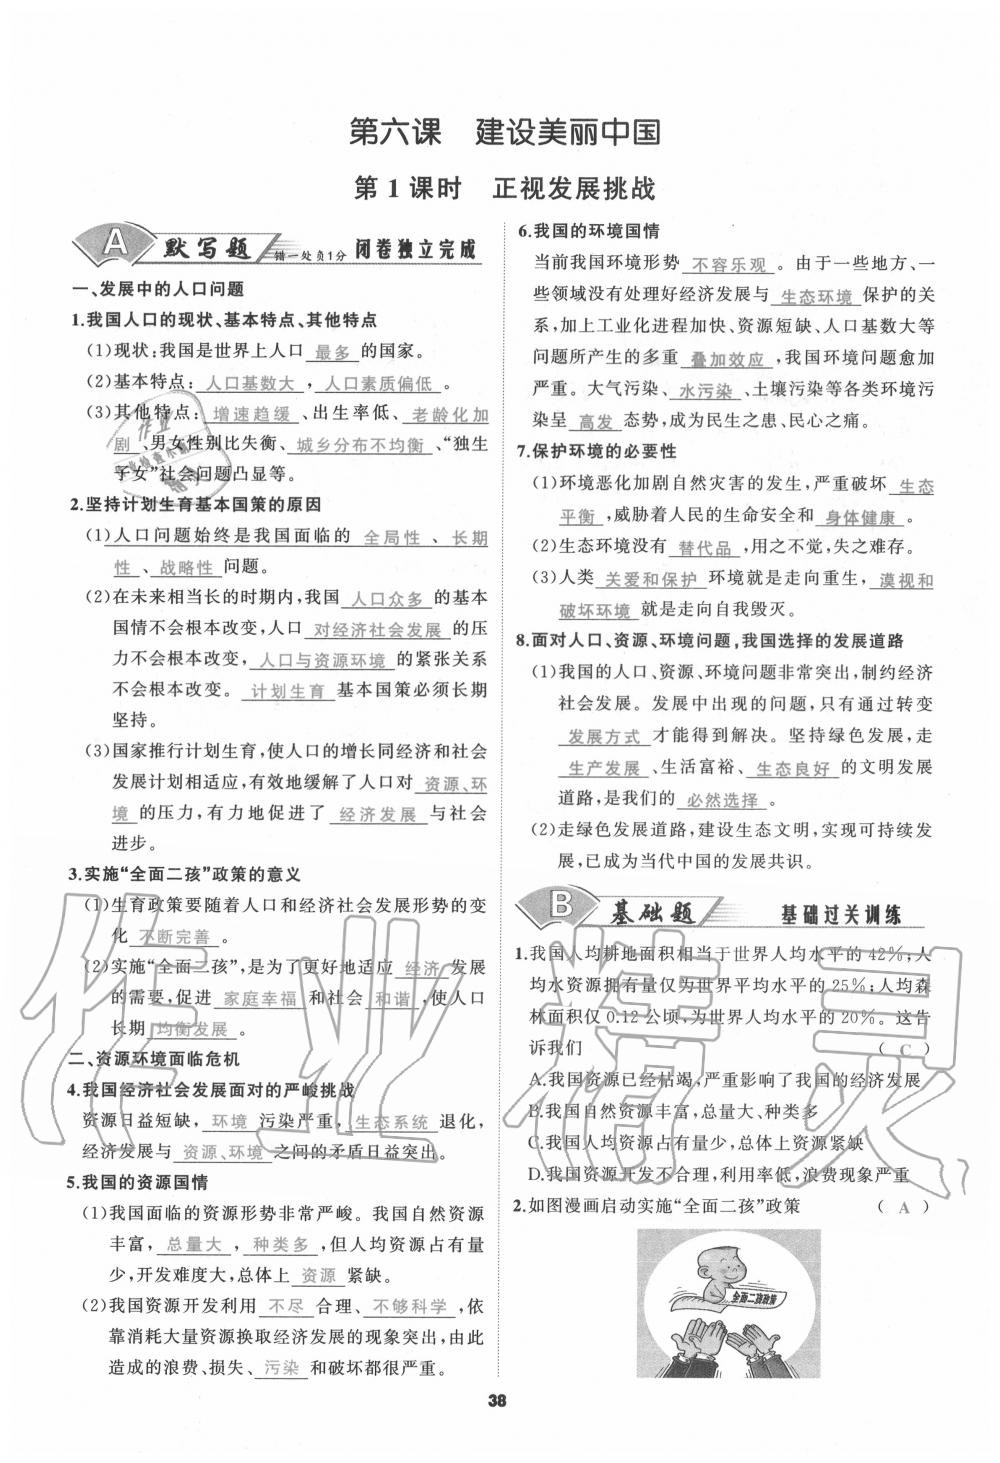 第六课　建设美丽中国
第1课时　正视发展挑战
A 默写题 错一处负1分 闭卷独立完成
一、发展中的人口问题
1.我国人口的现状、基本特点、其他特点
(1)现状:我国是世界上人口 最多 的国家。
(2)基本特点: 人口基数大 , 人口素质偏低 。
(3)其他特点: 增速趋缓 、出生率低、 老龄化加
剧 、男女性别比失衡、 城乡分布不均衡 、“独生
子女”社会问题凸显等。
2.坚持计划生育基本国策的原因
(1)人口问题始终是我国面临的 全局性 、 长期
性 、 战略性 问题。
(2)在未来相当长的时期内,我国 人口众多 的基本
国情不会根本改变,人口 对经济社会发展 的压
力不会根本改变, 人口与资源环境 的紧张关系
不会根本改变。 计划生育 基本国策必须长期
坚持。
(3)国家推行计划生育,使人口的增长同经济和社会
发展计划相适应,有效地缓解了人口对 资源、环
境 的压力,有力地促进了 经济发展 与社会
进步。
3.实施“全面二孩”政策的意义
(1)生育政策要随着人口和经济社会发展形势的变
化 不断完善 。
(2)实施“全面二孩”,是为了更好地适应 经济 发展
的需要,促进 家庭幸福 和社会 和谐 ,使人口
长期 均衡发展 。
二、资源环境面临危机
4.我国经济社会发展面对的严峻挑战
资源日益短缺, 环境 污染严重, 生态系统 退化,
经济发展与 资源、环境 之间的矛盾日益突出。
5.我国的资源国情
(1)我国面临的资源形势非常严峻。我国自然资源
丰富, 总量大 , 种类多 ,但人均资源占有量
少,开发难度大,总体上 资源 紧缺。
(2)我国资源开发利用 不尽 合理、 不够科学 ,依
靠消耗大量资源换取经济发展的现象突出,由此
造成的浪费、损失、 污染 和破坏都很严重。
6.我国的环境国情
当前我国环境形势 不容乐观 。由于一些地方、一
些领域没有处理好经济发展与 生态环境 保护的关
系,加上工业化进程加快、资源短缺、人口基数大等
问题所产生的多重 叠加效应 ,我国环境问题愈加
严重。大气污染、 水污染 、土壤污染等各类环境污
染呈 高发 态势,成为民生之患、民心之痛。
7.保护环境的必要性
(1)环境恶化加剧自然灾害的发生,严重破坏 生态
平衡 ,威胁着人民的生命安全和 身体健康 。
(2)生态环境没有 替代品 ,用之不觉,失之难存。
(3)人类 关爱和保护 环境就是走向重生, 漠视和
破坏环境 就是走向自我毁灭。
8.面对人口、资源、环境问题,我国选择的发展道路
(1)我国的人口、资源、环境问题非常突出,制约经济
社会发展。发展中出现的问题,只有通过转变
发展方式 才能得到解决。坚持绿色发展,走
生产发展 、生活富裕、 生态良好 的文明发展
道路,是我们的 必然选择 。
(2)走绿色发展道路,建设生态文明,实现可持续发
展,已成为当代中国的发展共识。
B 基础题 基础过关训练
1.我国人均耕地面积相当于世界人均水平的42%,人
均水资源拥有量仅为世界平均水平的25%;人均森
林面积仅0.12公顷,为世界人均水平的20%。这告
诉我们 ( C )
A.我国资源已经枯竭,严重影响了我国的经济发展
B.我国自然资源丰富,总量大、种类多
C.我国人均资源占有量少,总体上资源紧缺
D.我国资源开发不合理,利用率低,浪费现象严重
2.如图漫画启动实施“全面二孩”政策 ( A )
全面二孩政策
38
作业精灵